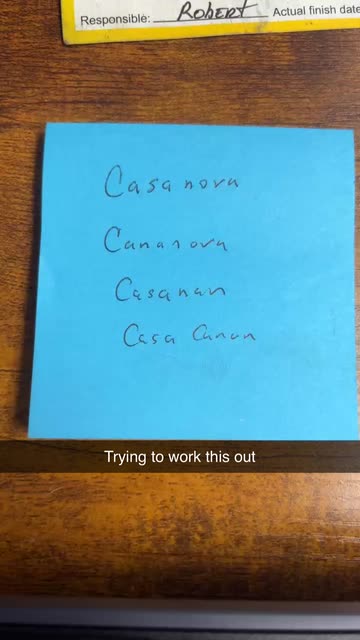 Responsible: Robert Actual finish date
Casanova
Cananova
Casanan
Casa Canon
Trying to work this out